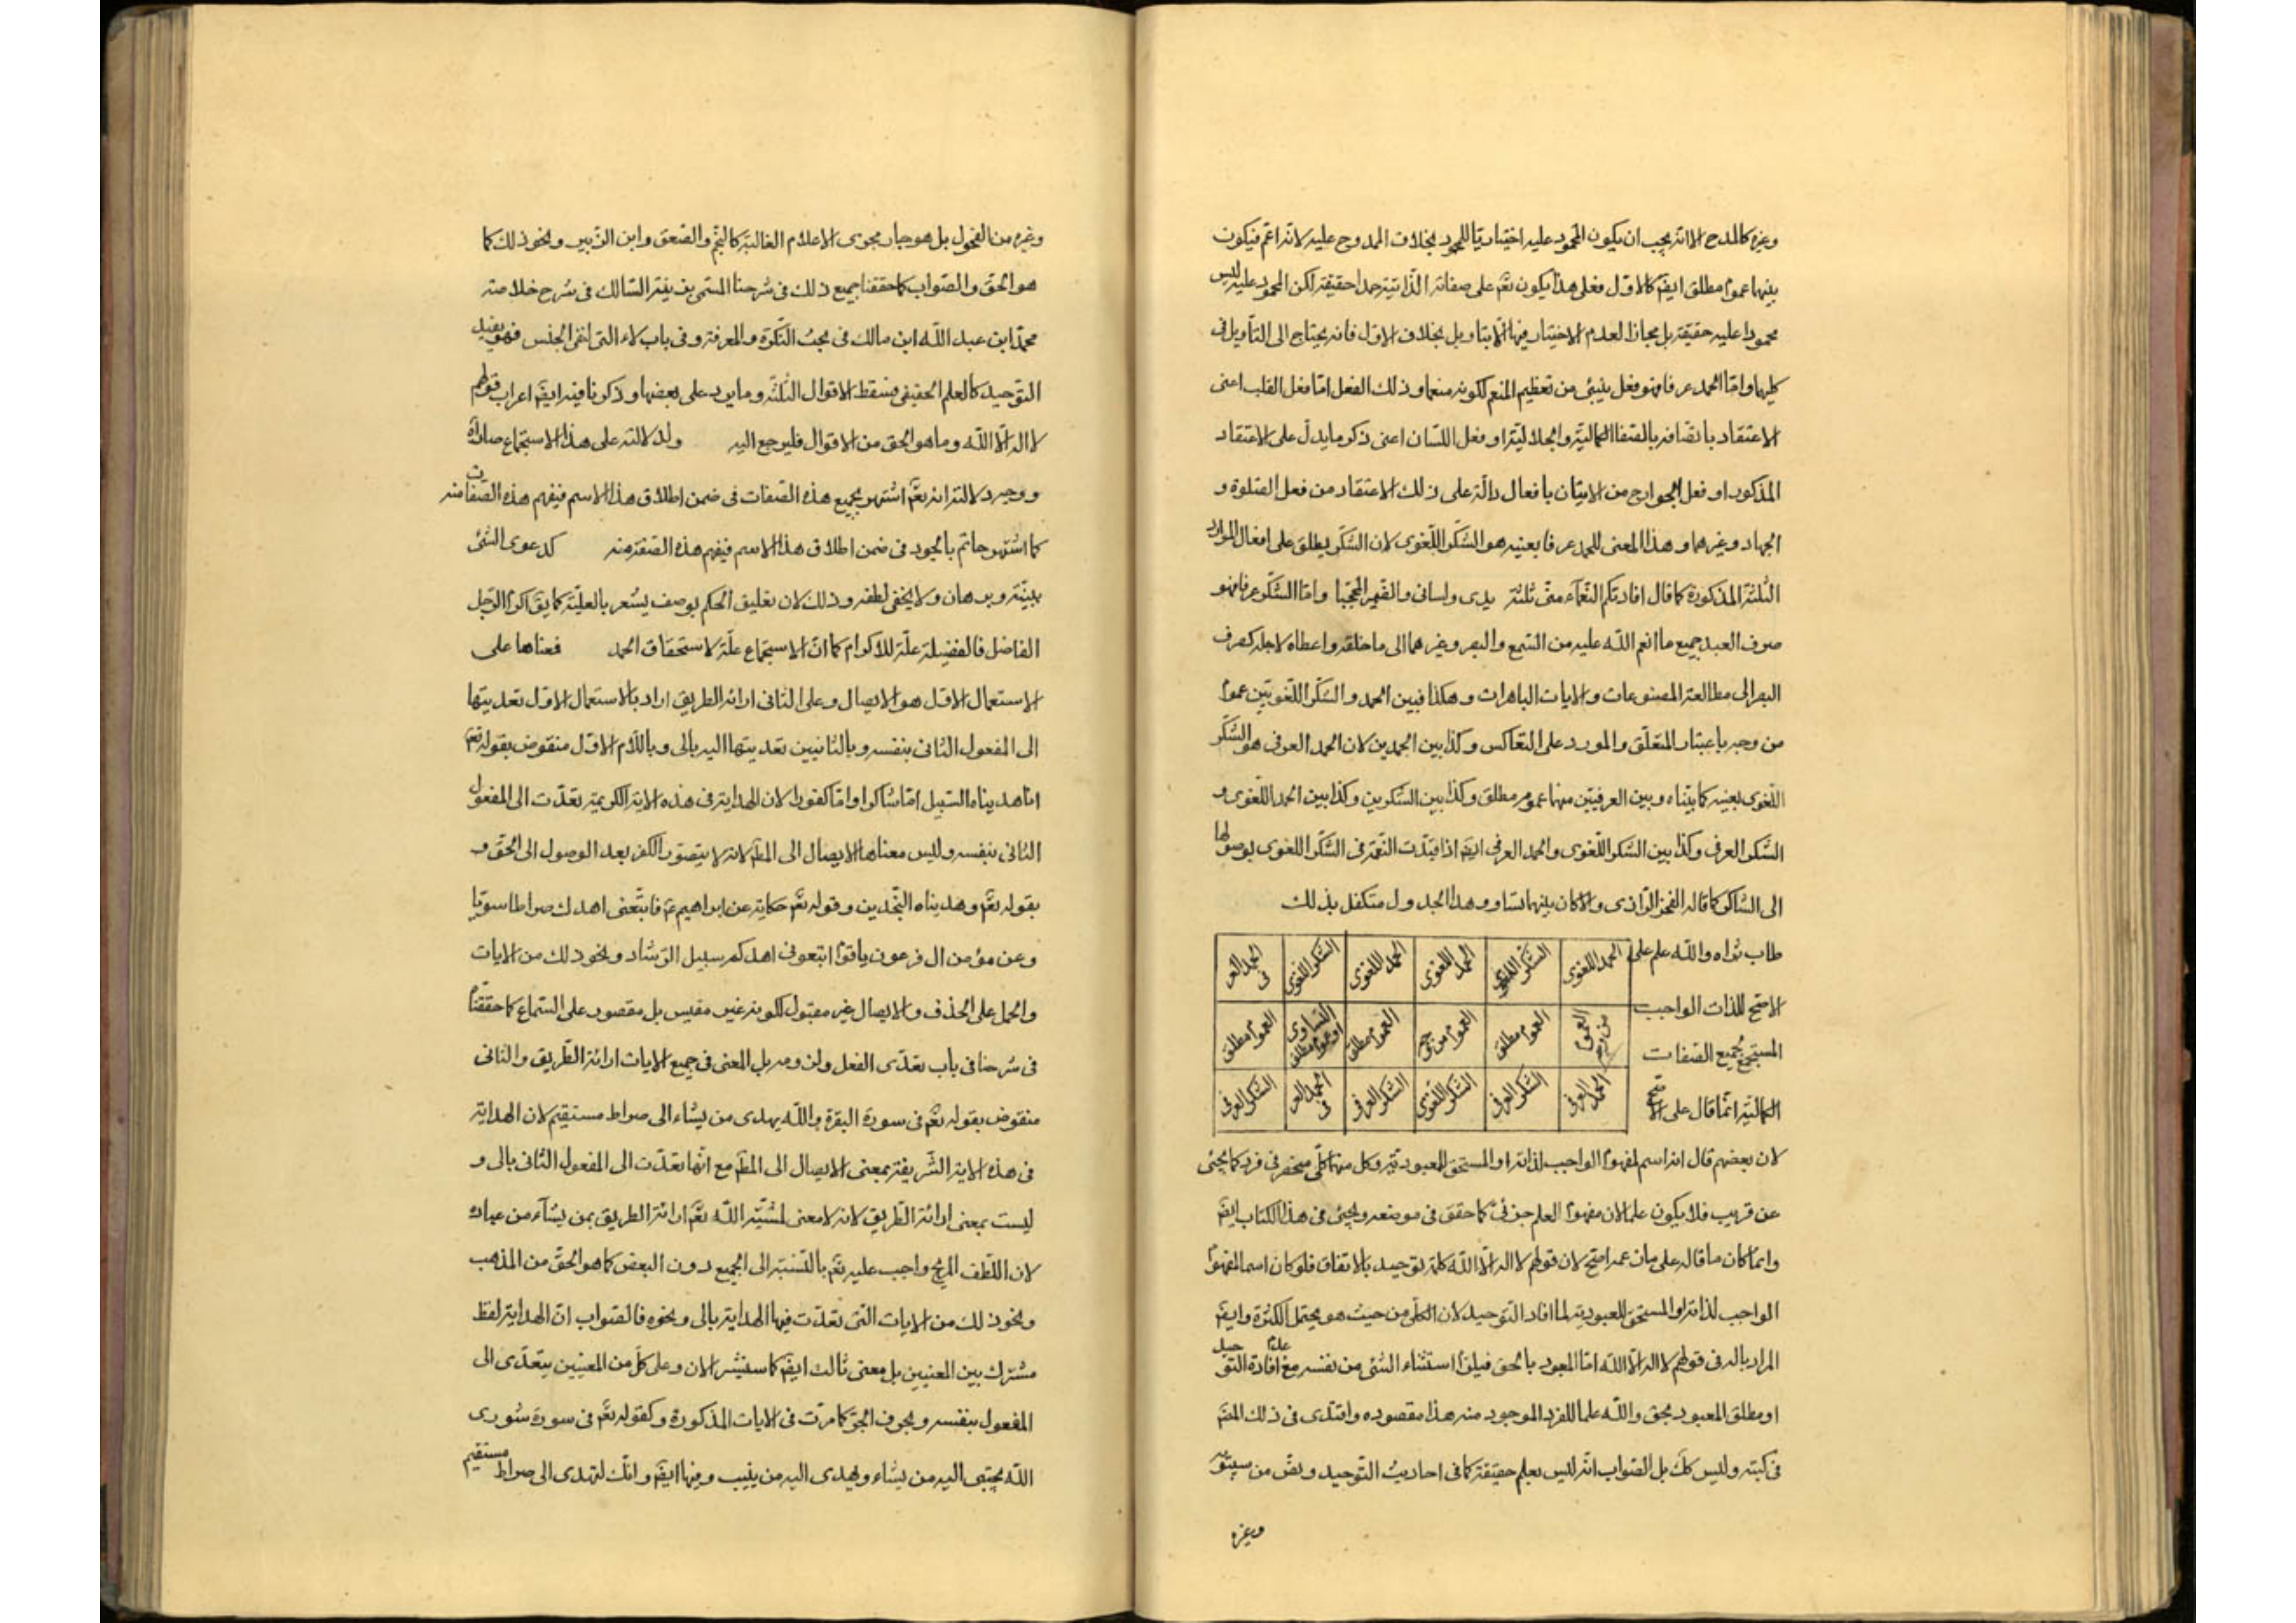 وغيره كالمدح الا انه يجب ان يكون المحمود عليه اختياريا للمحمود بخلاف الممدوح عليه لانه اعم فيكون
بينهما عموم مطلق ايضم كالاول فعلى هذا يكون تعم على صفاته الذاتية حمدا حقيقة لكن المحمود عليه ليس
محمودا عليه حقيقة بل مجازا لعدم الاختيار فيها الا بتاويل بخلاف الاول فانه يحتاج الى التأويل في
كليهما واما الحمد عرفا فهو فعل ينبئ من تعظيم المنعم لكونه منعما وذلك الفعل اما فعل القلب اعنى
الاعتقاد باتصافه بالصفات الكمالية والجلالية او فعل اللسان اعنى ذكر ما يدل على الاعتقاد
المذكور او فعل الجوارح من الاتيان بافعال دالة على ذلك الاعتقاد من فعل الصلوة و
الجهاد وغيرهما وهذا المعنى للحمد عرفا بعينه هو الشكر اللغوى لان الشكر يطلق على افعال الموارد
الثلثة المذكورة كما قال افادتكم النعماء منى ثلثة يدى ولسانى والضمير المحجبا واما الشكر عرفا فهو
صرف العبد جميع ما انعم الله عليه من السمع والبصر وغيرهما الى ما خلقه واعطاه لاجله كصرف
البصر الى مطالعة المصنوعات والايات الباهرات وهكذا فبين الحمد والشكر اللغويين عموم
من وجه باعتبار المتعلق والمورد على التعاكس وكذا بين الحمدين لان الحمد العرفى هو الشكر
اللغوى بعينه كما بيناه وبين العرفيين منهما عموم مطلق وكذا بين الشكرين وكذا بين الحمد اللغوى و
الشكر العرفى وكذا بين الشكر اللغوى والحمد العرفى ايضم اذا قيدت النعمة فى الشكر اللغوى بوصولها
الى الشاكر كما قاله الفخر الرازى والا كان بينهما تساو وهذا الجدول متكفل بذلك
طاب ثراه والله علم على
الاصح للذات الواجب
المستجمع لجميع الصفات
الكمالية انما قال على الاصح
الحمد اللغوى الشكر اللغوى الحمد اللغوى الحمد اللغوى الشكر اللغوى الحمد العرفى
العموم من وجه العموم مطلق العموم من وجه العموم مطلق التساوى او عموم مطلق العموم مطلق
الحمد العرفى الشكر العرفى الشكر اللغوى الشكر العرفى الحمد العرفى الشكر العرفى
لان بعضهم قال انه اسم لمفهوم الواجب لذاته او المستحق للعبودية وكل منهما كلى منحصر فى فرد كما يجئ
عن قريب فلا يكون علما لان مفهوم العلم جزئى كما حقق فى موضعه ويجئ فى هذا الكتاب ايضم
وانما كان ما قاله على ما زعمه اصح لان قولهم لا اله الا الله كلمة توحيد بالاتفاق فلو كان اسما لمفهوم
الواجب لذاته او المستحق للعبودية لما افاد التوحيد لان الكلى من حيث هو يحتمل الكثرة وايضم
المراد باله فى قولهم لا اله الا الله اما المعبود بالحق فيلزم استثناء الشئ من نفسه مع عدم افادة التوحيد
او مطلق المعبود بحق والله علما للفرد الموجود منه هذا مقصوده واقتدى فى ذلك المصم
فى كتبه وليس كك بل الصواب انه ليس بعلم حقيقة كما فى احاديث التوحيد ونص من سيبويه
وغيره
وغيره من الفحول بل هو جار مجرى الاعلام الغالبة كالنجم والصعق وابن الزبير ونحو ذلك كما
هو الحق والصواب كما حققنا جميع ذلك فى شرحنا المسمى بذ السالك فى شرح خلاصة
محمد ابن عبد الله ابن مالك فى بحث النكرة والمعرفة وفى باب لاء التى لنفى الجنس فهو يفيد
التوحيد كالعلم الحقيقى فسقط الاقوال الثلثة وما يرد على بعضها وذكرنا فيه ايضم اعراب قولهم
لا اله الا الله وما هو الحق من الاقوال فليرجع اليه ولدلالته على هذا الاستجماع صار اه
ووجه دلالته انه تعم اشتهر بجميع هذه الصفات فى ضمن اطلاق هذا الاسم فيفهم هذه الصفات منه
كما اشتهر حاتم بالجود فى ضمن اطلاق هذا الاسم فيفهم هذه الصفة منه كدعوى الشئ
ببينة وبرهان ولا يخفى لطفه وذلك لان تعليق الحكم بوصف يشعر بالعلية كما يقم اكرم الرجل
الفاضل فالفضيلة علة للاكرام كما ان الاستجماع علة لاستحقاق الحمد فمعناها على
الاستعمال الاول هو الايصال وعلى الثانى ارائة الطريق اراد بالاستعمال الاول تعديتها
الى المفعول الثانى بنفسه وبالثانيين تعديتها اليه بالى وباللام الاول منقوض بقوله تعم
انا هديناه السبيل اما شاكرا واما كفورا لان الهداية فى هذه الاية الكريمة تعدت الى المفعول
الثانى بنفسه وليس معناها الايصال الى المط لانه لا يتصور الكفر بعد الوصول الى الحق و
بقوله تعم وهديناه النجدين وقوله تعم حكاية عن ابراهيم عم فاتبعنى اهدك صراطا سويا
وعن مؤمن ال فرعون ياقوم اتبعونى اهدكم سبيل الرشاد ونحو ذلك من الايات
والحمل على الحذف والايصال غير مقبول لكونه غير مقيس بل مقصور على السماع كما حققنا
فى شرحنا فى باب تعدى الفعل ولزومه بل المعنى فى جميع الايات ارائة الطريق والثانى
منقوض بقوله تعم فى سورة البقرة والله يهدى من يشاء الى صراط مستقيم لان الهداية
فى هذه الاية الشريفة بمعنى الايصال الى المط مع انها تعدت الى المفعول الثانى بالى و
ليست بمعنى ارائة الطريق لانه لا معنى لمشية الله تعم ارائة الطريق بمن يشاء من عباده
لان اللطف المريح واجب عليه تعم بالنسبة الى الجميع دون البعض كما هو الحق من المذهب
ونحو ذلك من الايات التى تعدت فيها الهداية بالى ونحوه فالصواب ان الهداية لفظ
مشترك بين المعنيين بل معنى ثالث ايضم كما سنشير الان وعلى كل من المعنيين يتعدى الى
المفعول بنفسه وبحرف الجر كما مرت فى الايات المذكورة وكقوله تعم فى سورة شورى
الله يجتبى اليه من يشاء ويهدى اليه من ينيب وفيها ايضم وانك لتهدى الى صراط مستقيم